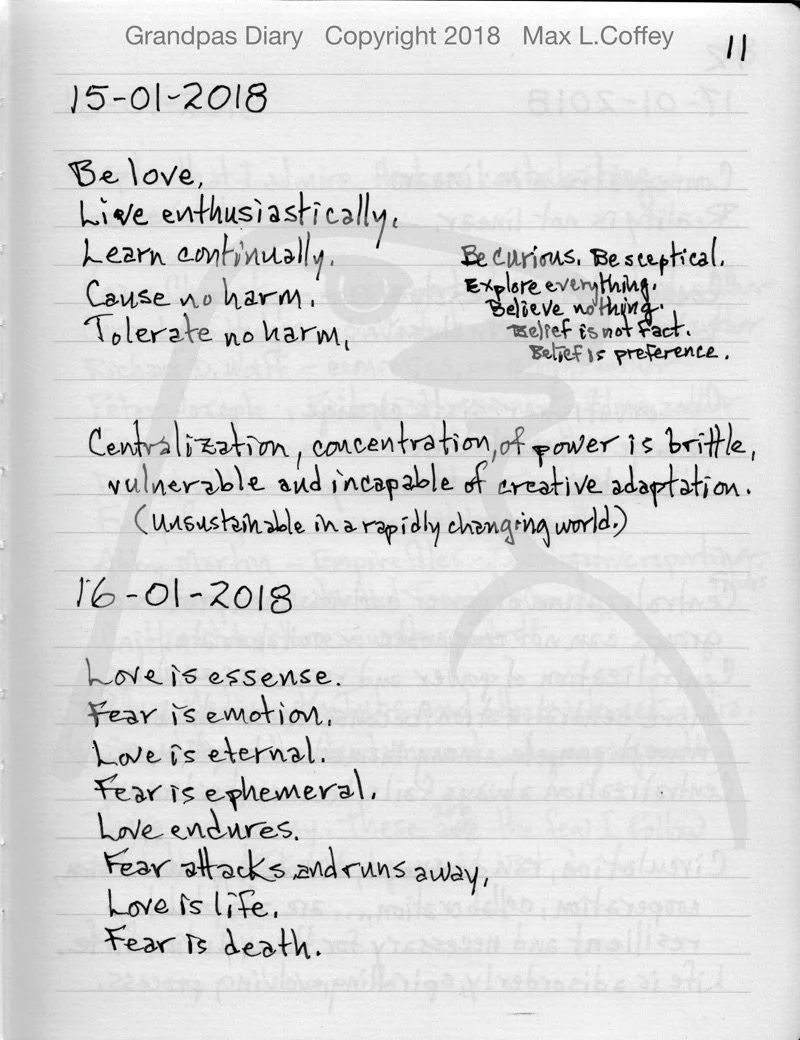 Grandpas Diary Copyright 2018 Max L.Coffey
11
15-01-2018
Be love,
Live enthusiastically,
Learn continually,
Cause no harm,
Tolerate no harm,
Be curious. Be sceptical.
Explore everything.
Believe nothing.
Belief is not fact.
Belief is preference.
Centralization, concentration, of power is brittle,
vulnerable and incapable of creative adaptation.
(Unsustainable in a rapidly changing world.)
16-01-2018
Love is essense.
Fear is emotion.
Love is eternal.
Fear is ephemeral.
Love endures.
Fear attacks and runs away,
Love is life.
Fear is death.